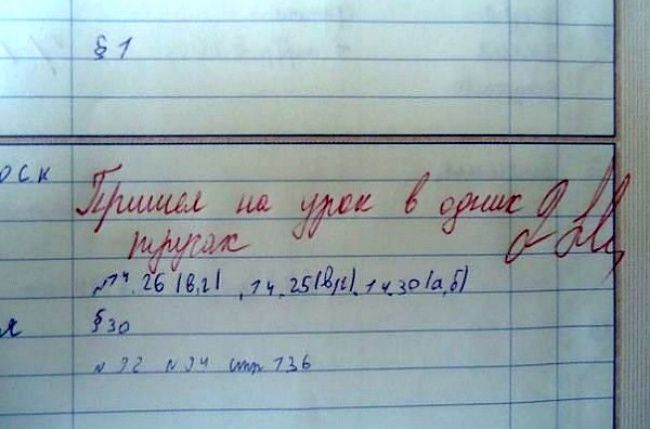 § 1
оск
Пришел на урок в одних 2
трусах
№14.26 (в,г), 14.25(в,г), 14.30(а,б)
я §30
№92 №94 стр 136